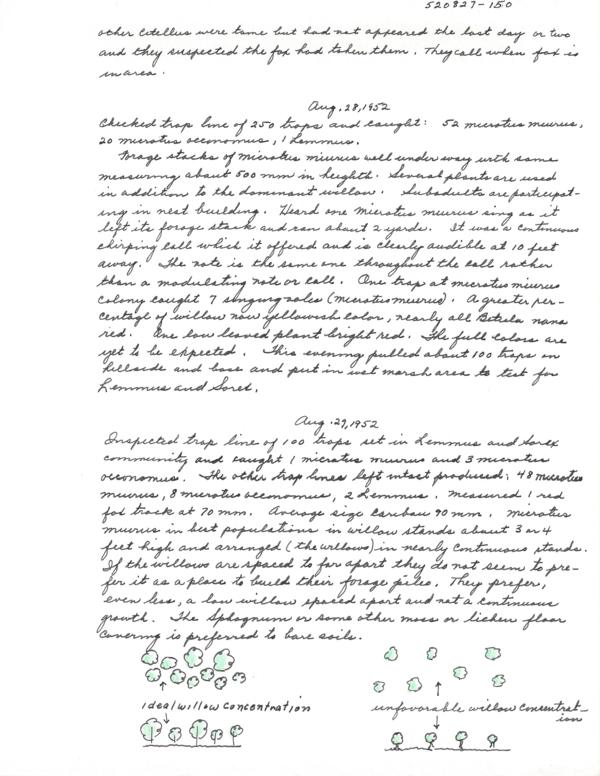 520827-150
other Citellus were tame but had not appeared the last day or two
and they suspected the fox had taken them. They call when fox is
in area.
Aug. 28, 1952
Checked trap line of 250 traps and caught: 52 microtus miurus,
20 microtus oeconomus, 1 Lemmus.
Forage stacks of microtus miurus well under way with some
measuring about 500 mm in heighth. Several plants are used
in addition to the dominant willow. Subadults are participat-
ing in nest building. Heard one Microtus miurus sing as it
left its forage stack and ran about 2 yards. It was a continuous
chirping call which it offered and is clearly audible at 10 feet
away. The note is the same one throughout the call rather
than a modulating note or call. One trap at microtus miurus
colony caught 7 singing voles (microtus miurus). A greater per-
centage of willow now yellowish color, nearly all Betula nana
red. One low leaved plant bright red. The full colors are
yet to be expected. This evening pulled about 100 traps on
hillside and base and put in wet marsh area to test for
Lemmus and Sorex.
Aug. 29, 1952
Inspected trap line of 100 traps set in Lemmus and Sorex
community and caught 1 microtus miurus and 3 microtus
oeconomus. The other trap lines left intact produced; 48 microtus
miurus, 8 microtus oeconomus, 2 Lemmus. Measured 1 red
fox track at 70 mm. Average size caribou 90 mm. Microtus
miurus in best populations in willow stands about 3 or 4
feet high and arranged (the willows) in nearly continuous stands.
If the willows are spaced to far apart they do not seem to pre-
fer it as a place to build their forage piles. They prefer,
even less, a low willow spaced apart and not a continuous
growth. The Sphagnum or some other moss or lichen floor
covering is preferred to bare soils.
ideal willow concentration
unfavorable willow concentrat-
ion